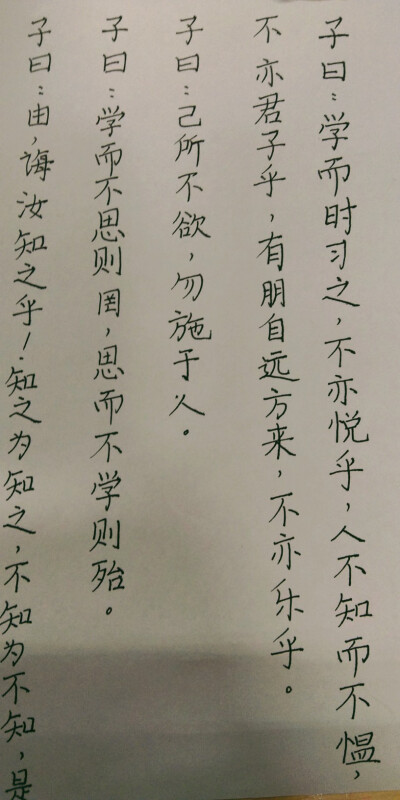 子曰：学而时习之，不亦悦乎，人不知而不愠，
不亦君子乎，有朋自远方来，不亦乐乎。
子曰：己所不欲，勿施于人。
子曰：学而不思则罔，思而不学则殆。
子曰：由，诲汝知之乎！知之为知之，不知为不知，是